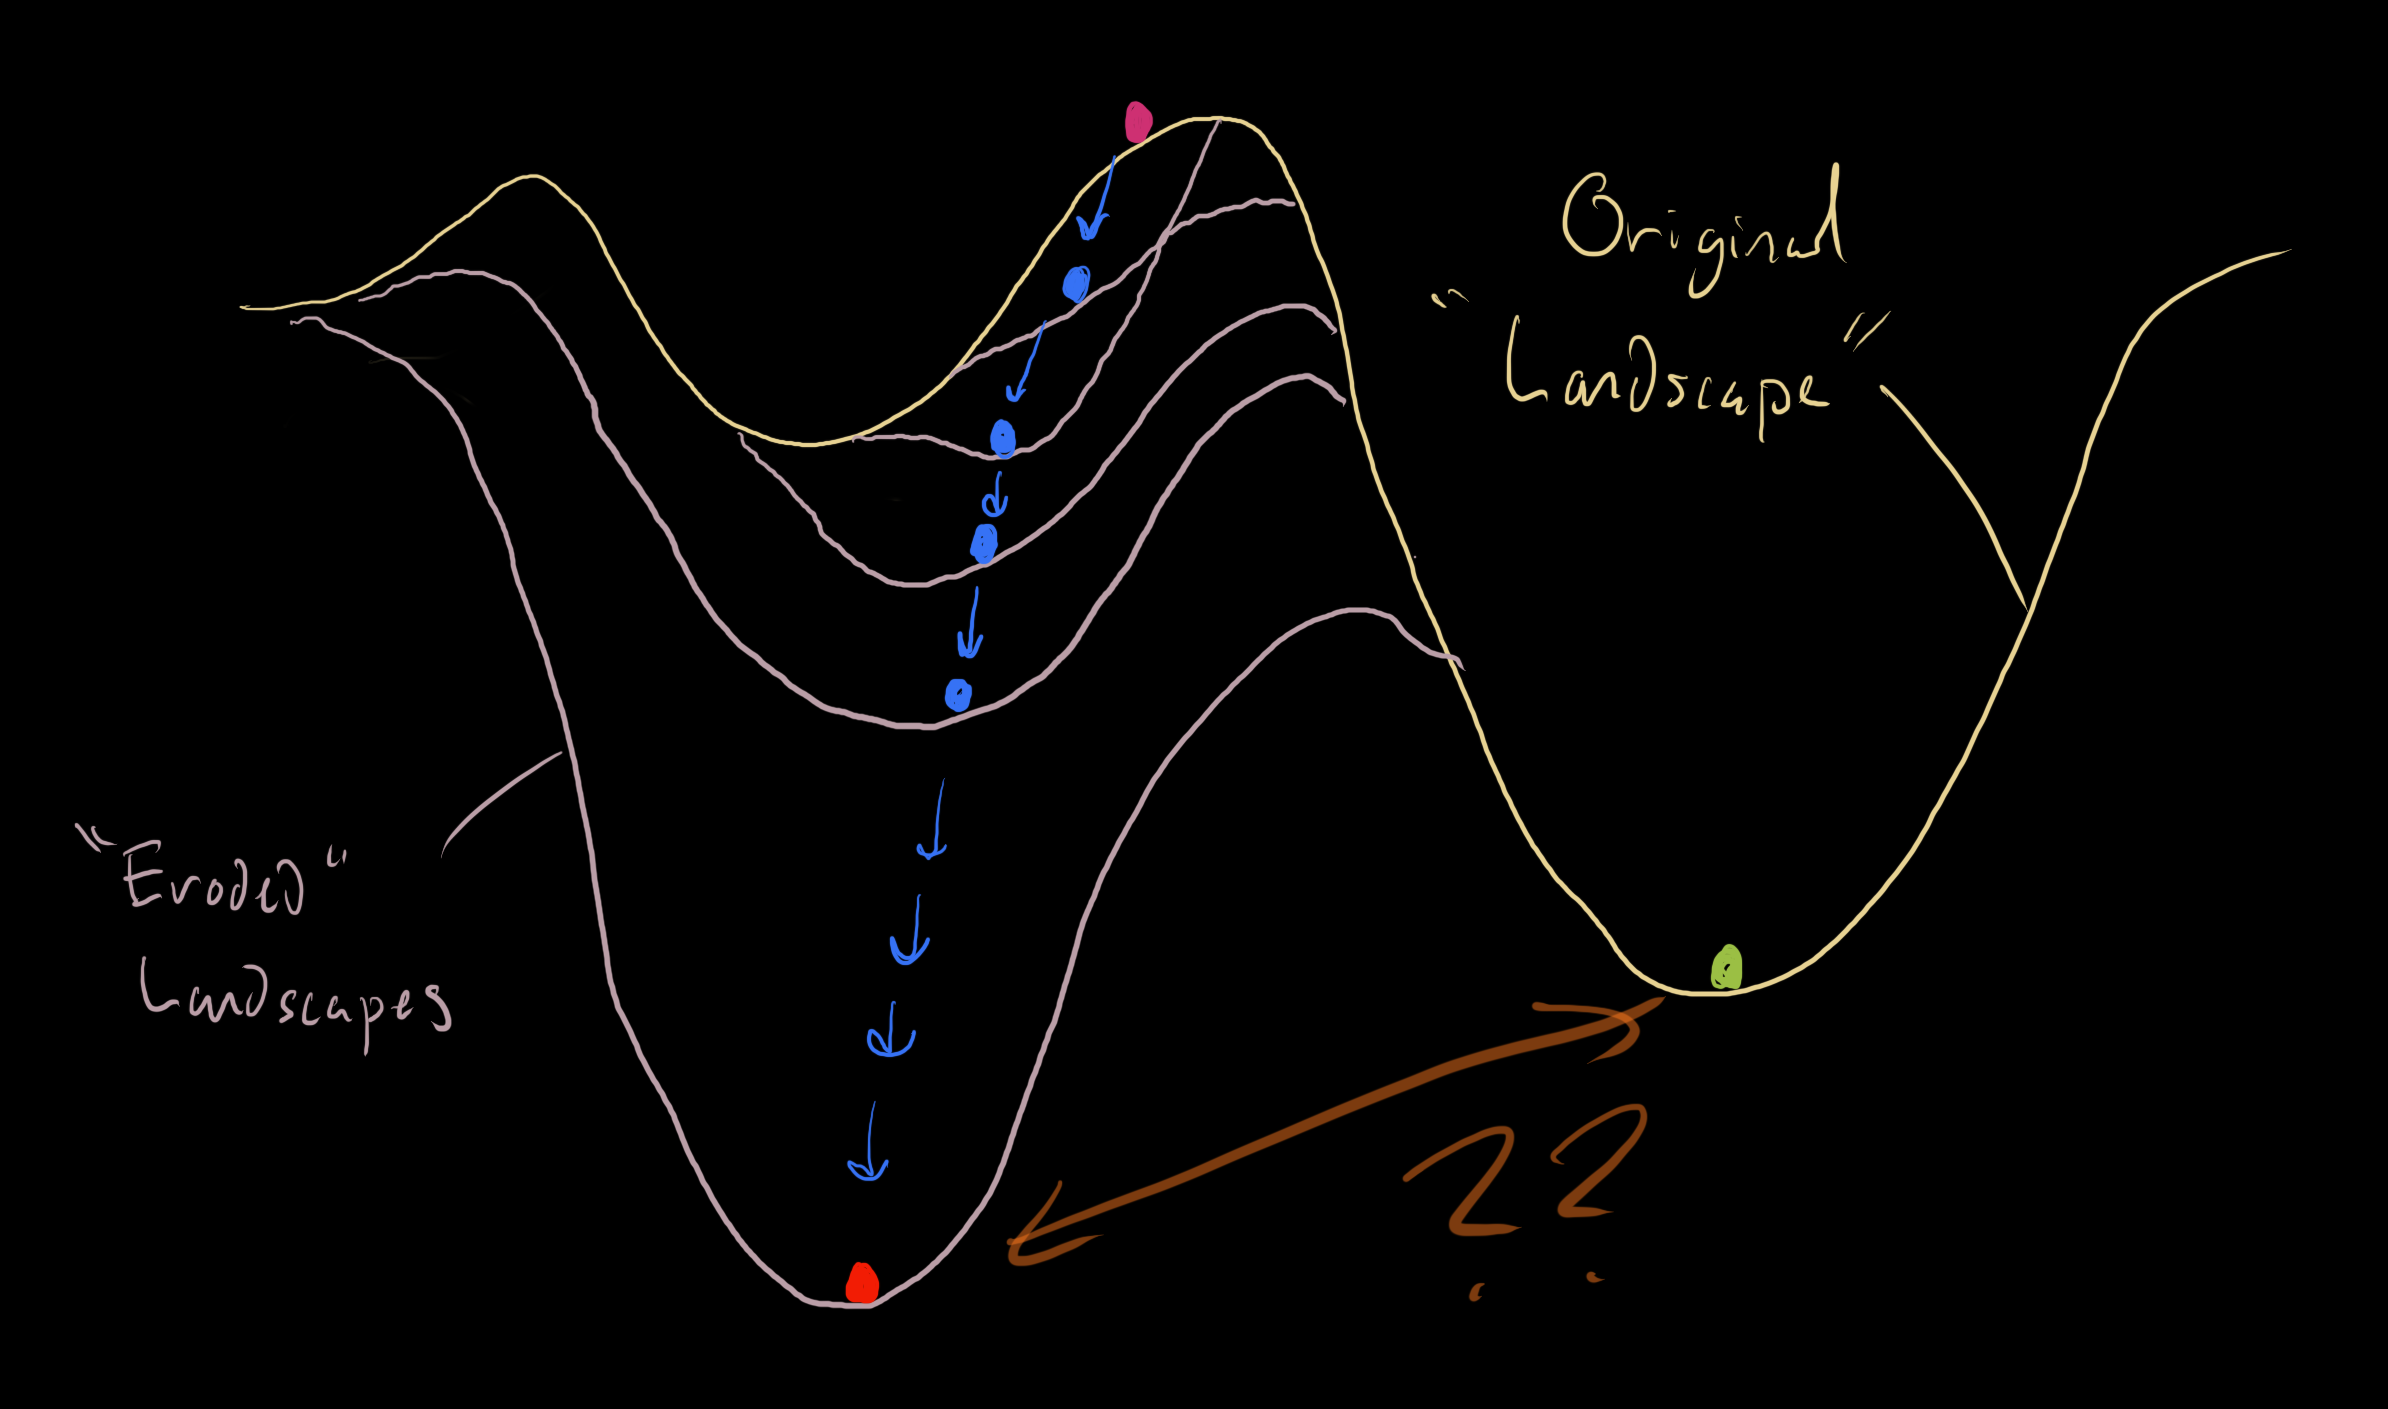 Original
"Landscape"
"Eroded"
Landscapes
??